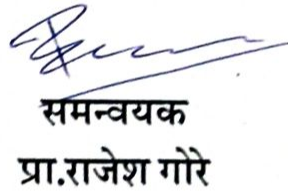 समन्वयक
प्रा.राजेश गोरे